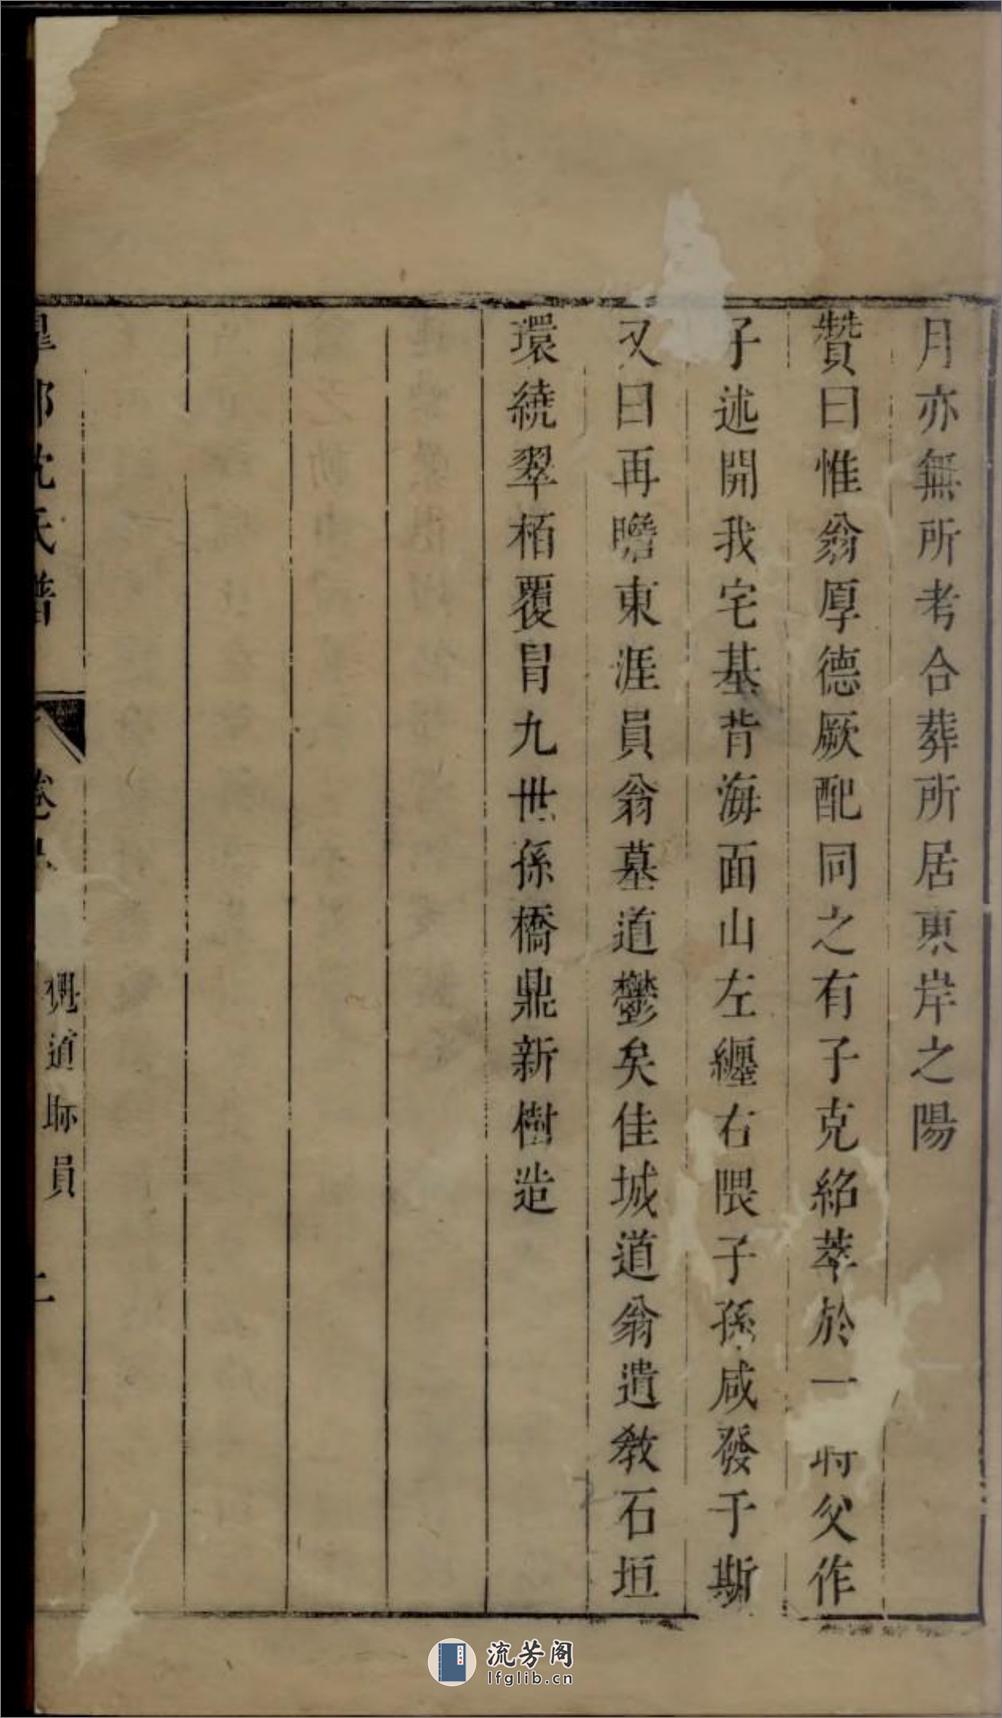 月亦無所考合葬所居東岸之陽
贊曰惟翁厚德厥配同之有子克紹萃於一時父作
子述開我宅基背海面山左纏右隈子孫咸發于斯
又曰再瞻東涯員翁墓道鬱矣佳城道翁遺教石垣
環繞翠栢覆冒九世孫橋鼎新樹造
沈氏譜
卷
道 員
二
流芳阁
lfglib.cn